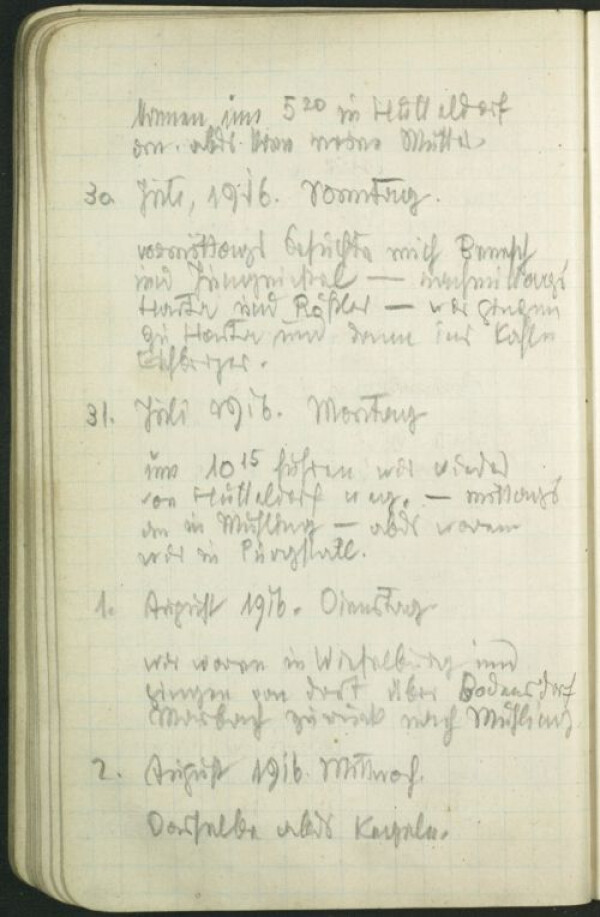 kamen um 5 20 in Hütteldorf
an. abds. kam meine Mutter.
30. Juli, 1916. Sonntag.
vormittags besuchte mich Benesch
und Jungnickel — nachmittags
Harta und Rößler — wir gingen
zu Harta und dann ins Kafee
Eichberger.
31. Juli 1916. Montag
um 10 15 fuhren wir wieder
von Hütteldorf weg. — mittags
an in Mühling — abds waren
wir in Purgstall.
1. August 1916. Dienstag.
wir waren in Wieselburg und
gingen von dort über Bodensdorf
Marbach zurück nach Mühling
2. August 1916. Mittwoch.
Dasselbe abds Kegeln.